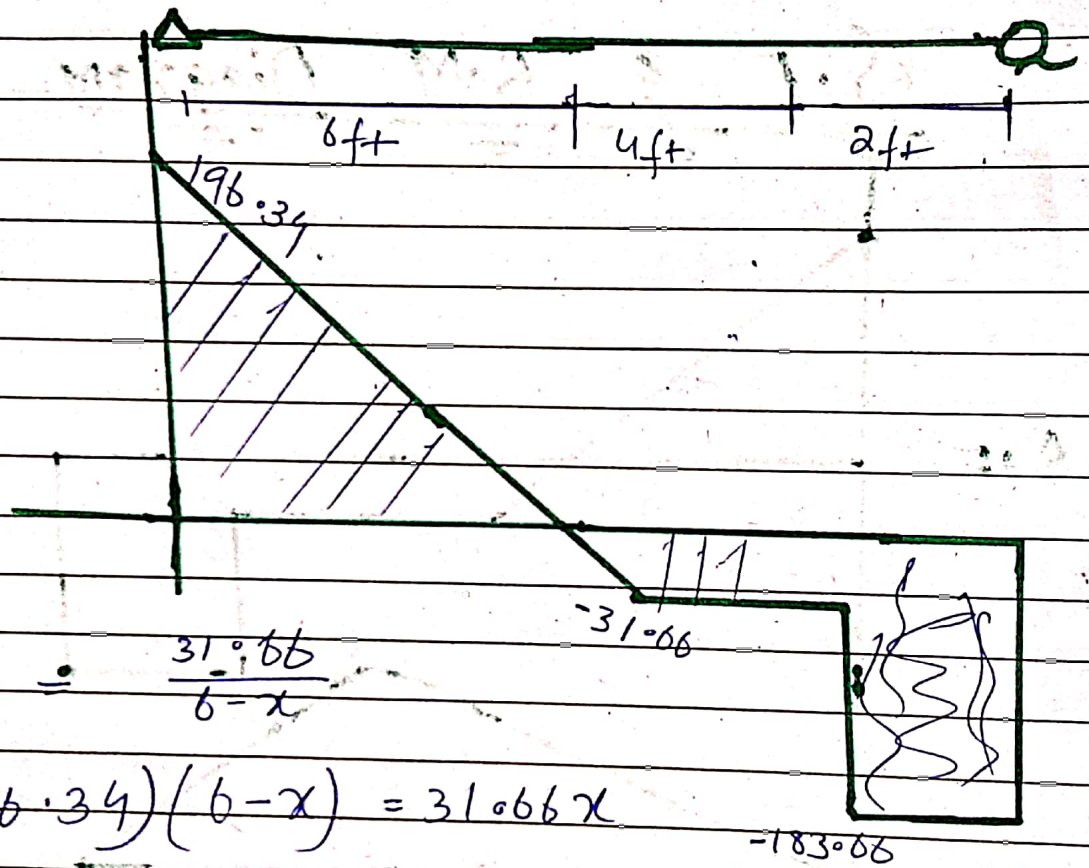 6ft 4ft 2ft
196.34
-31.66
= 31.66
6-x
6.34)(6-x) = 31.66x
-183.66